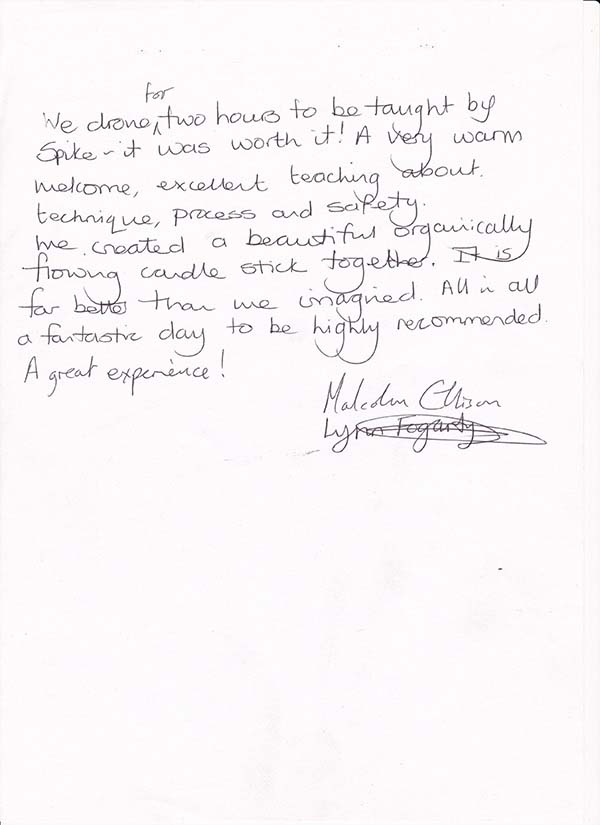 for
We drove two hours to be taught by
Spike - it was worth it! A very warm
welcome, excellent teaching about
technique, process and safety.
We created a beautiful organically
flowing candle stick together. It is
far better than we imagined. All in all
a fantastic day to be highly recommended.
A great experience!
Malcolm Ellison
Lynn Fogarty